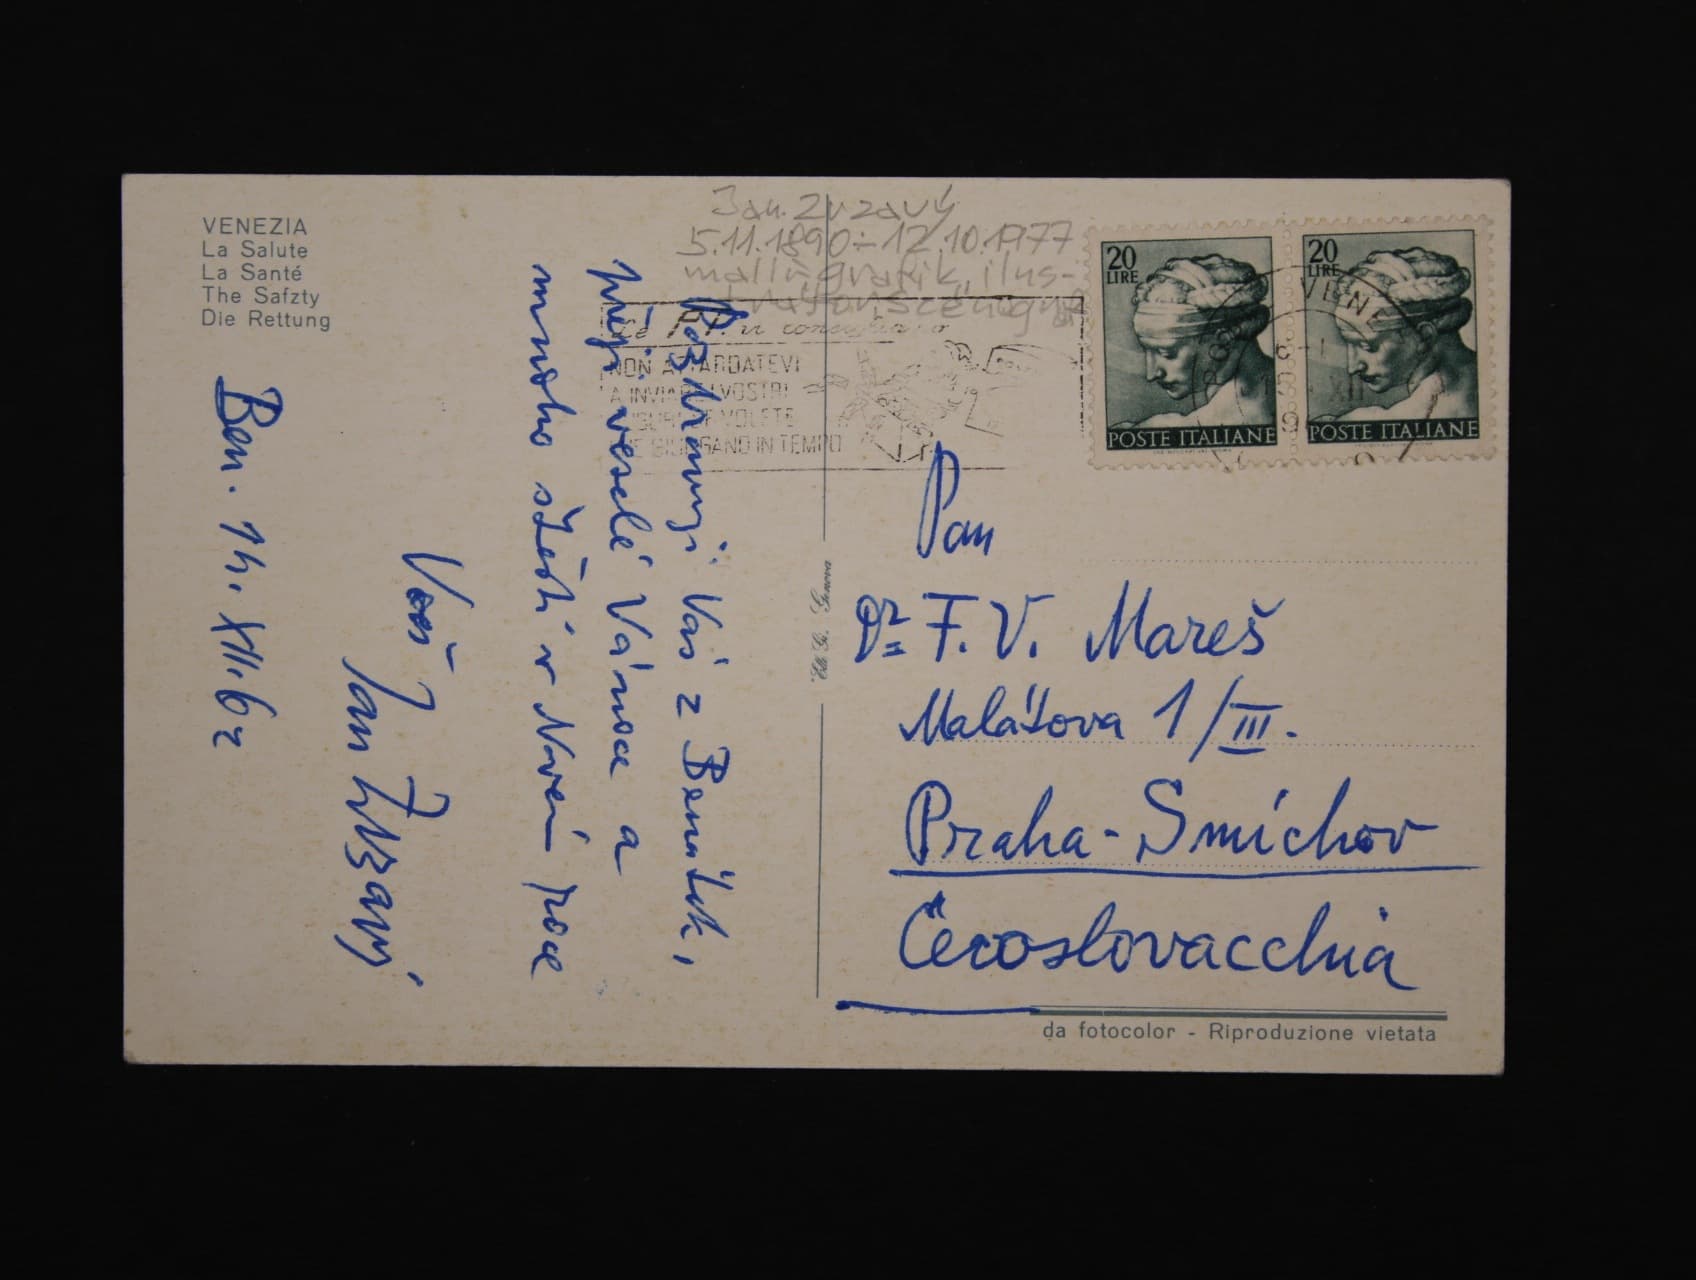 VENEZIA
La Salute
La Santé
The Safzty
Die Rettung
Jan Zrzavý
5.11.1890 - 12.10.1977
malíř, grafik, ilus-
NON ATTARDATEVI
A INVIARE I VOSTRI
AUGURI SE VOLETE
CHE GIUNGANO IN TEMPO
20
LIRE
POSTE ITALIANE
20
LIRE
POSTE ITALIANE
Pozdravuji Vás z Benátek,
přeji veselé Vánoce a
mnoho štěstí v Novém roce
Váš
Jan Zrzavý
Ben. 14. XII. 62
Pan
Dr. F. V. Mareš
Malátova 1/III.
Praha - Smíchov
Čecoslovacchia
da fotocolor - Riproduzione vietata